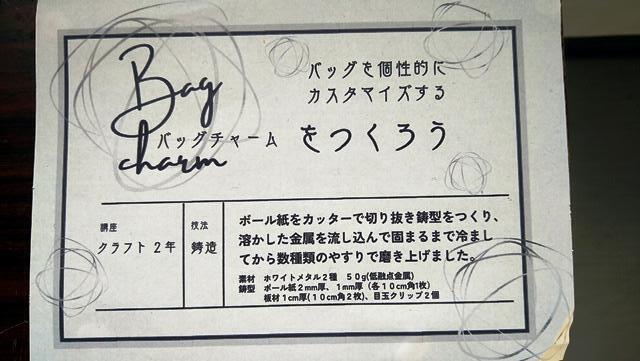 Bag
charm
バッグチャーム
バッグを個性的に
カスタマイズする
をつくろう
講座
クラフト2年
技法
鋳造
ボール紙をカッターで切り抜き鋳型をつくり、
溶かした金属を流し込んで固まるまで冷まし
てから数種類のやすりで磨き上げました。
素材 ホワイトメタル2種 50g(低融点金属)
鋳型 ボール紙2mm厚、1mm厚(各10cm角1枚)
板材1cm厚(10cm角2枚)、目玉クリップ2個